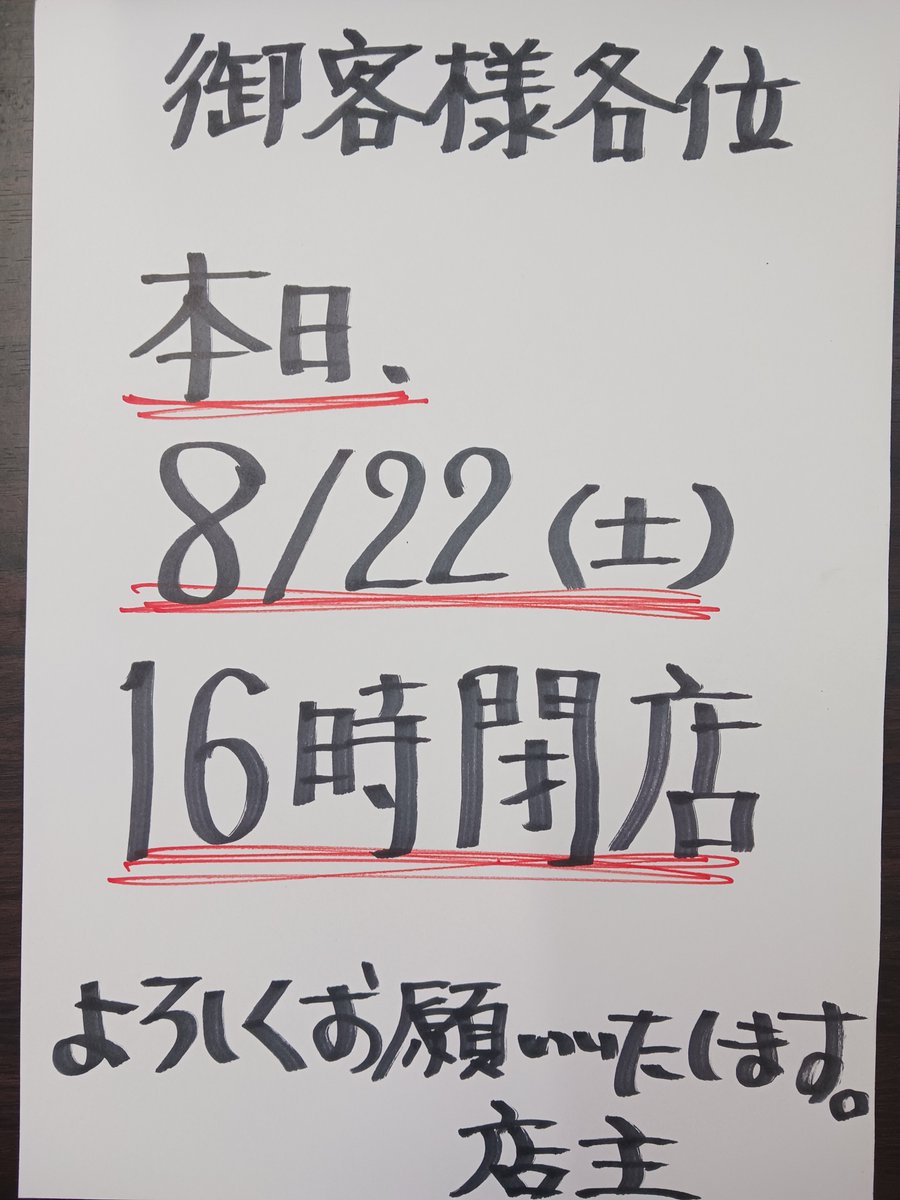 御客様各位
本日、
8/22(土)
16時閉店
よろしくお願いいたします。
店主